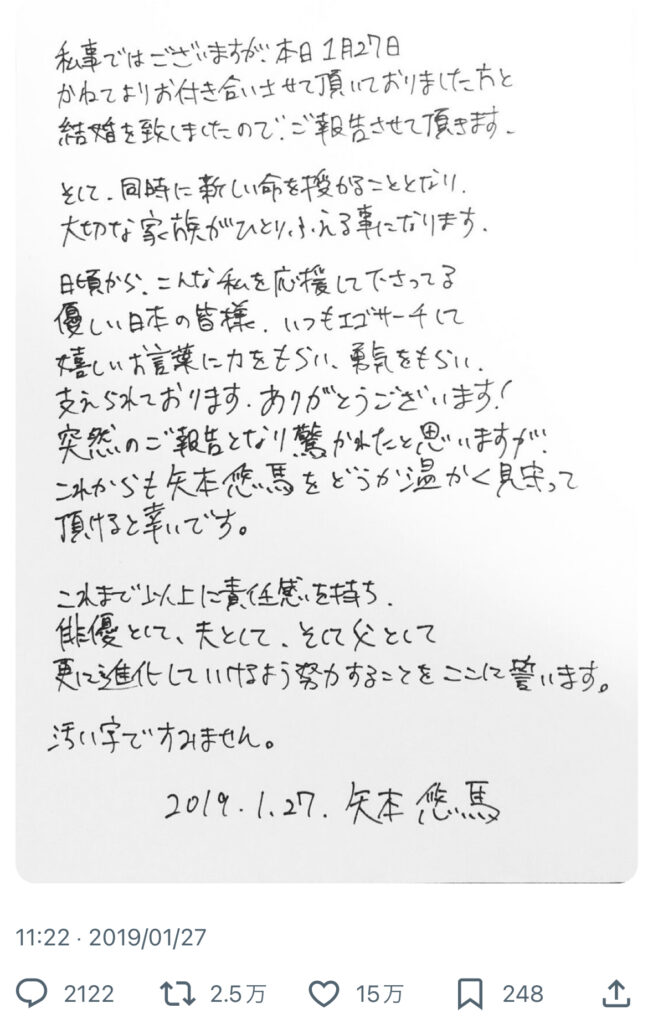 私事ではございますが、本日1月27日
かねてよりお付き合いさせて頂いておりました方と
結婚を致しましたので、ご報告させて頂きます。
そして、同時に新しい命を授かることとなり、
大切な家族がひとりふえる事になります。
日頃から、こんな私を応援して下さってる
優しい日本の皆様、いつもエゴサーチして
嬉しいお言葉に力をもらい、勇気をもらい、
支えられております。ありがとうございます!
突然のご報告となり驚かれたと思いますが、
これからも矢本悠馬をどうか温かく見守って
頂けると幸いです。
これまで以上に責任感を持ち、
俳優として、夫として、そして父として
更に進化していけるよう努力することをここに誓います。
汚い字ですみません。
2019.1.27. 矢本悠馬
11:22 · 2019/01/27
2122 2.5万 15万 248